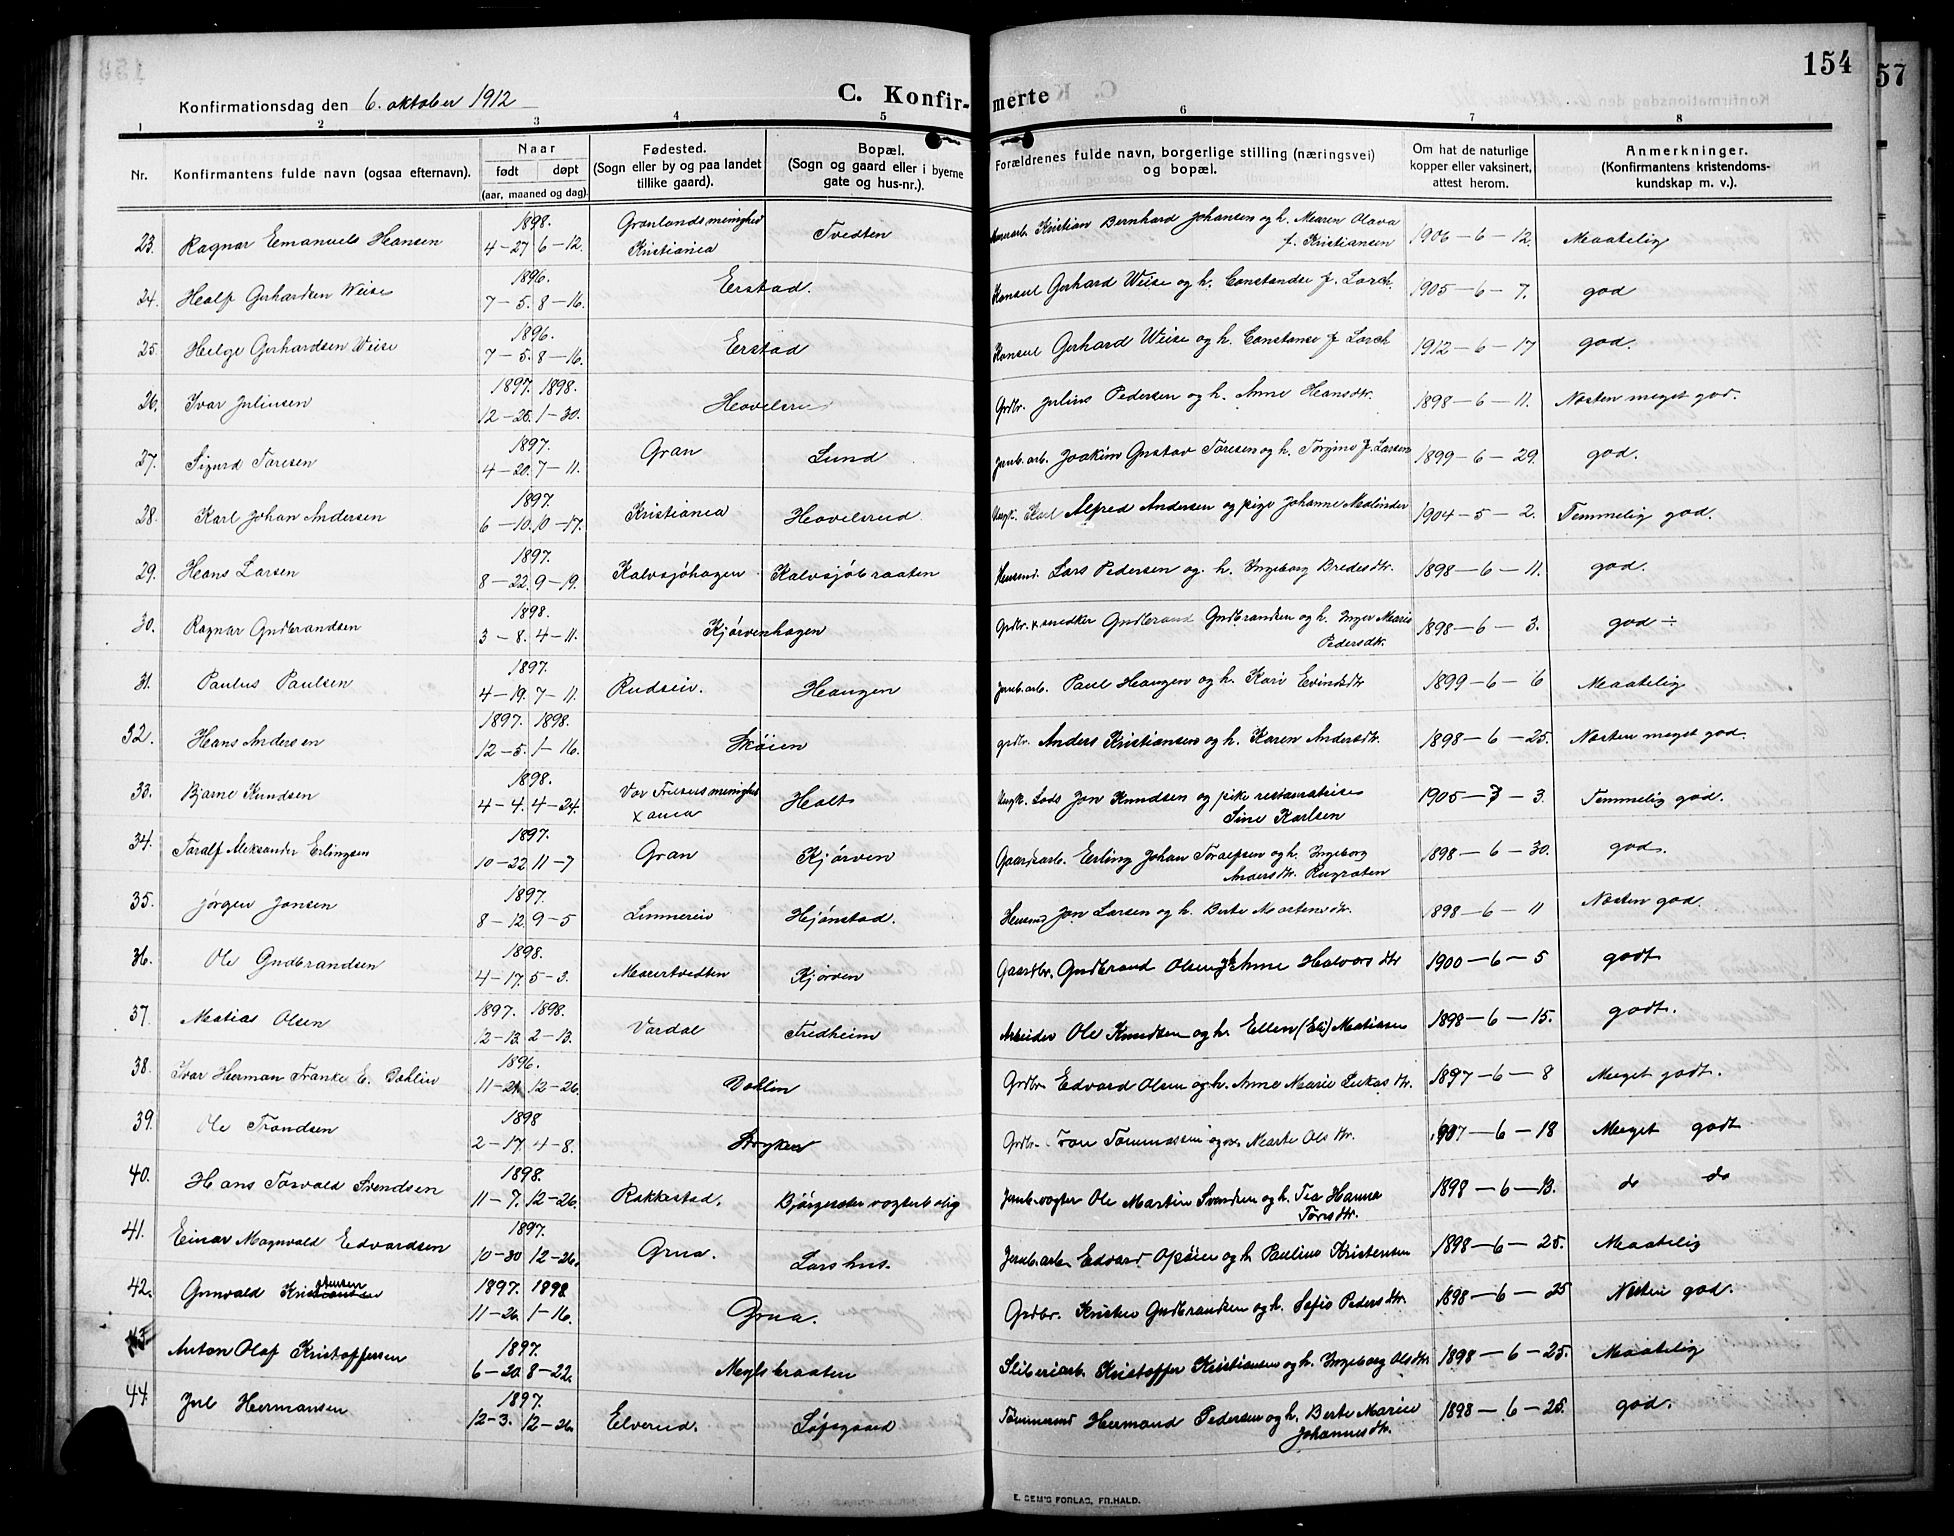 154
57
Konfirmationsdag den 6. oktober 1912
C. Konfir- merte
1 2 3 4 5 6 7 8
Nr. Konfirmantens fulde navn (ogsaa efternavn). Naar født døpt (aar, maaned og dag). Fødested. (Sogn eller by og paa landet tillike gaard). Bopæl. (Sogn og gaard eller i byerne gate og hus-nr.). Forældrenes fulde navn, borgerlige stilling (næringsvei) og bopæl. Om hat de naturlige kopper eller vaksinert, attest herom. Anmerkninger. (Konfirmantens kristendoms- kundskap m. v.).
23. Ragnar Emanuels Hansen 1898. 4-27 6-12. Grønlands menighed Kristiania Tvedten Kristian Bernhard Johansen og h. Maren Olava f. Kristiansen 1906-6-12. Maatelig
24. Half Gerhardsen Weise 1896. 7-5. 8-16. Erstad. Konsul Gerhard Weise og h. Constanse f. Lorch. 1905-6-7. god
25. Helge Gerhardsen Weise 1896. 7-5. 8-16. Erstad Konsul Gerhard Weise og h. Constanse f Lorch 1912-6-17 god.
26. Ivar Juliusen 1897. 1898. 12-26. 1-30. Hovelsrud Grdbr. Julius Pedersen og h. Anne Hansdtr. 1898-6-11. Næsten meget god.
27. Sigurd Toresen 1897. 4-20. 7-11. Gran Lund Jernb.arb. Joakim Gustav Toresen og h. Torgine f. Larsen 1899-6-29. god.
28. Karl Johan Andersen 1897. 6-10. 10-17. Kristiania Hovelsrud. Ungk. Karl Alfred Andersen og pige Johanne Malinder 1904-5-2. Temmelig god.
29. Hans Larsen 1897. 8-22. 9-19. Kalvsjøhagen Kalvsjøbraaten Husmd. Lars Pedersen og h. Ingeborg Bredesdtr. 1898-6-11. god.
30. Ragnar Gudbrandsen 1898. 3-8. 4-11. Kjørvenhagen Grdbr. x snedker Gudbrand Gudbrandsen og h. Inger Marie Pedersdtr. 1898-6-3. god ÷
31. Paulus Paulsen 1897. 4-19. 7-11. Rudseie. Haugen Jernb.arb. Paul Haugen og h. Kari Evindsdtr 1899-6-6 Maatelig
32. Hans Andersen 1897. 1898. 12-5. 1-16. Skøien grdbr. Anders Kristiansen og h. Karen Andersdtr. 1898-6-25. Næsten meget god.
33. Bjarne Knudsen 1898. 4-4. 4-24. Vor Frelsers menighed Xania Holt Ungk. Lods Jon Knudsen og pike Sine Karlsen 1905-7-3. Temmelig god.
34. Toralf Aleksander Erlingsen 1897. 10-22 11-7 Gran Kjørven Gaardsarb. Erling Johan Toralfsen og h. Ingeborg Andersdtr. 1898-6-30. god.
35. Jørgen Jonsen 1897. 8-12. 9-5 Linnereie Hjønstad. Husmd Jon Larsen og h. Berte Mortensdtr. 1898-6-11 Næsten god.
36. Ole Gudbrandsen 1898. 4-17. 5-3. Kjørven Gaardbr. Gudbrand Olsen Anne Halvorsdtr 1900-6-5 godt
37. Matias Olsen 1897. 1898. 12-13. 2-13. Vardal Fredheim Arbeider Ole Knudsen og h. Ellen (Eli) Matiasen 1898-6-15. godt.
38. Ivar Herman Franke E. Dahlin 1896. 11-21. 12-26. Dahlin Grdbr. Edvard Olsen og h. Anne Marie Lukasdtr. 1897-6-8 Meget godt.
39. Ole Trondsen 1898 2-17. 4-8. Stryken Grdbr. Tommassen Marte Olsdtr. 1907-6-18 Meget godt
40. Hans Torvald Svendsen 1898. 11-7. 12-26. Rakkestad. Bjørgeseter vogterbolig Jernb.vogter Ole Martin Svendsen og h. Tea Hanna Toresdtr. 1898-6-13. do do
41. Einar Magnvald Edvardsen 1897. 10-30 12-26. Grua. Larshus. Jernb.arb. Edvard Opøien og h Pauline Kristensen 1898-6-25. Maatelig
42. Grunvald Kristensen 1897. 1898 11-26. 1-16. Grua. Grdbr. Kristen Gudbrandsen og h. Sofie Pedersdtr. 1898-6-25 Næsten god.
43. Anton Olaf Kristoffersen 1897. 6-20. 8-22. Mylsbraaten Sliberiarb. Kristoffer Kristiansen og h. Ingeborg Olsdtr 1898-6-25. Maatelig
44. Jul Hermansen 1897. 12-3. 12-26. Elverud. Løfsgaard Tømmermd Hermand Pedersen og h. Berte Marie Johannesdtr. 1898-6-25. god.
E. SEM'S FORLAG, FR.HALD.